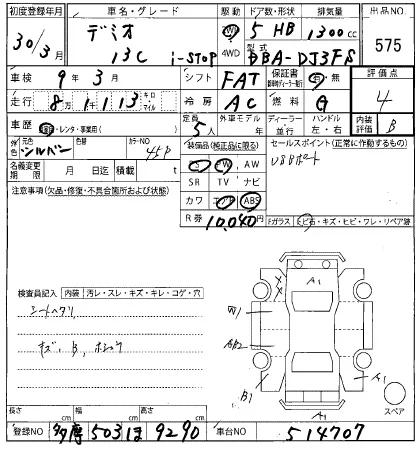 初度登録年月 車名・グレード 駆動 ドア数・形状 排気量 出品NO
30/3月 デミオ 13C i-STOP 2WD 4WD 5 HB 1300cc 575
型式 DBA-DJ3FS
車検 9年3月 シフト FAT 保証書 有・無 評価点
走行 8万1千113 キロ マイル 冷房 AC 燃料 G 4
車歴 自家・レンタ・事業用( ) 定員 5人 外車モデル 年 ディーラー 並行 ハンドル 左・右 内装評価 B
外色 元色 シルバー 色替 カラーNO 45P 装備品(純正品に限る) セールスポイント(正常に作動するもの)
名義変更期限 月 日迄 積載 t PS PW AW USBポート
注意事項(欠品・修復・不具合箇所および状態) SR TV ナビ
カワ エアB ABS
R券 10,040円 Fガラス 飛石・キズ・ヒビ・ワレ・リペア跡
A1
検査員記入 内装 汚レ・スレ・キズ・キレ・コゲ・穴
シートヘタリ W1
キズ、B、 A1
B1 A1 スペア
長さ cm 幅 cm 高さ cm
登録NO 多摩 503 ほ 9290 車台NO 514707